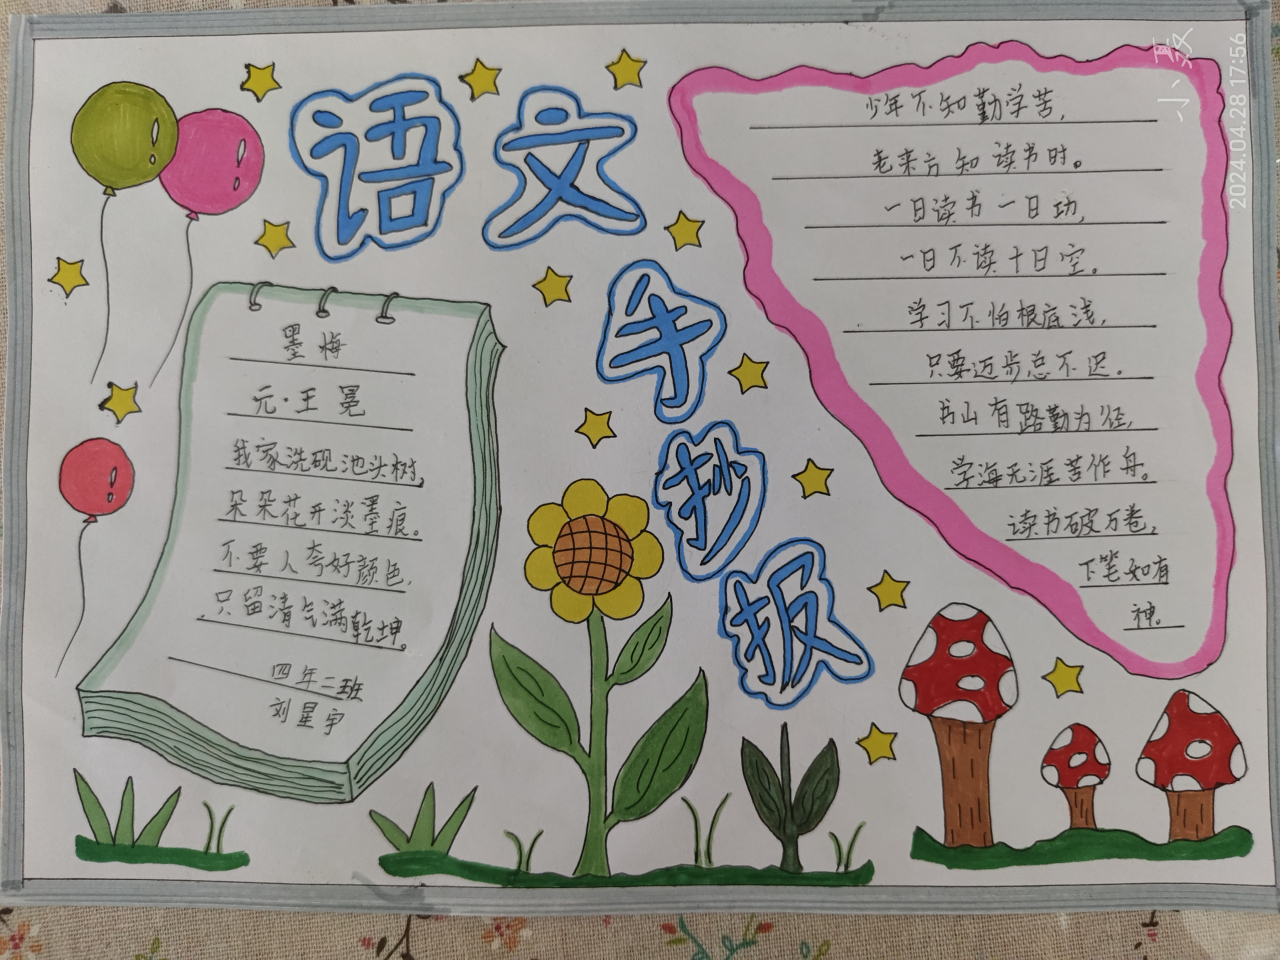 语文
手抄报
墨梅
元·王冕
我家洗砚池头树,
朵朵花开淡墨痕。
不要人夸好颜色,
只留清气满乾坤。
四年二班
刘星宇
少年不知勤学苦,
老来方知读书时。
一日读书一日功,
一日不读十日空。
学习不怕根底浅,
只要迈步总不迟。
书山有路勤为径,
学海无涯苦作舟。
读书破万卷,
下笔如有
神。
2024.04.28 17:56